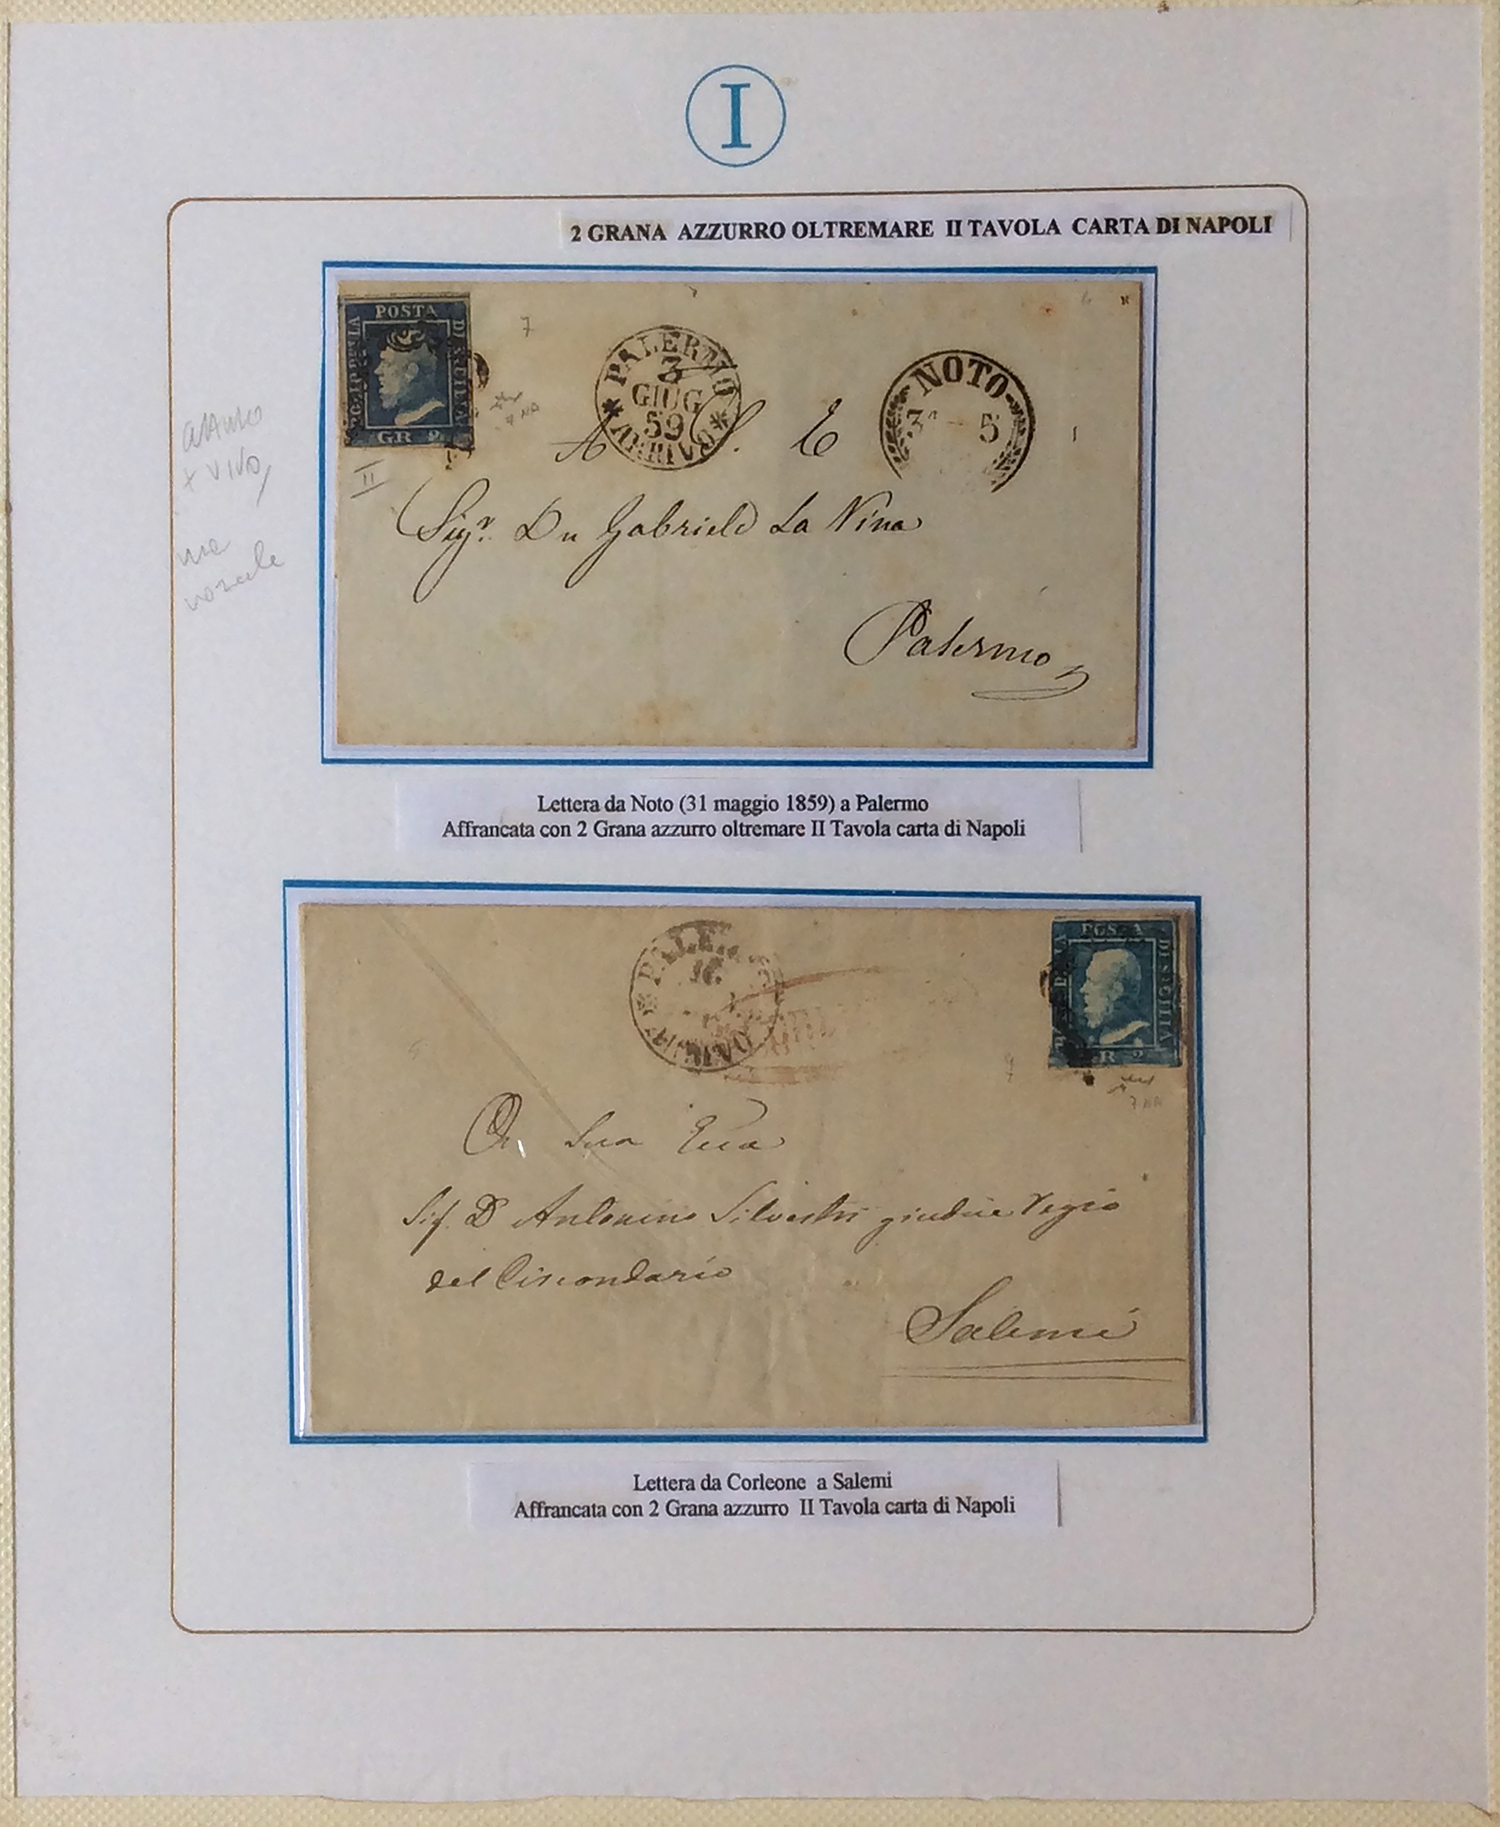 I
2 GRANA AZZURRO OLTREMARE II TAVOLA CARTA DI NAPOLI
POSTA
DI SICILIA
GR 2
7
II
PALERMO
3
GIUG
59
ARRIVO
NOTO
31 5
A. S. E.
Sigr. Dn Gabriele La Nina
Palermo
Lettera da Noto (31 maggio 1859) a Palermo
Affrancata con 2 Grana azzurro oltremare II Tavola carta di Napoli
POSTA
DI SICILIA
GR 2
PALE
16
A Sua Ecca
Sig. D Antonino Silvestri giudice Regio
del Circondario
Salemi
Lettera da Corleone a Salemi
Affrancata con 2 Grana azzurro II Tavola carta di Napoli